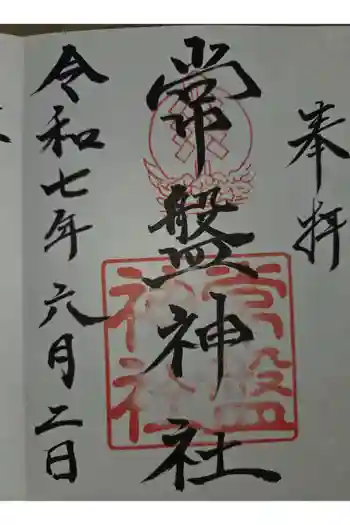 奉拝
常磐神社
常磐神社
令和七年六月二日